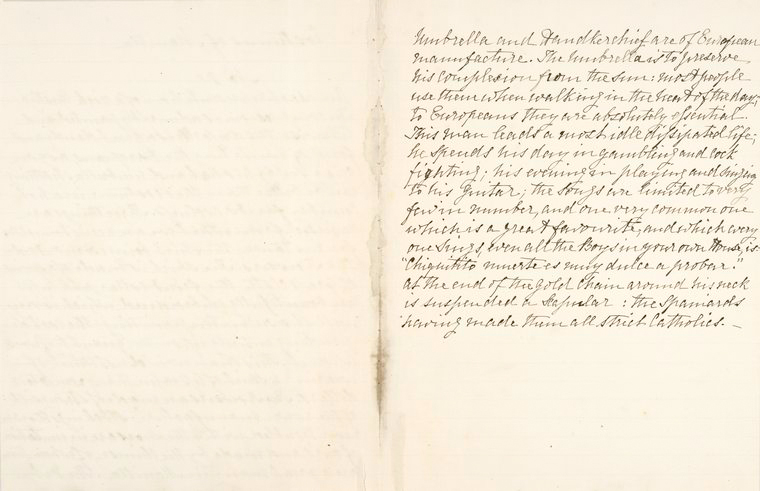 Umbrella and Handkerchief are of European
manufacture. The Umbrella is to preserve
his complexion from the sun: most people
use them when walking in the heat of the day;
to Europeans they are absolutely essential.
This man leads a most idle dissipated life;
he spends his day in gambling and cock
fighting; his evening in playing and singing
to his guitar; the songs are limited to very
few in number, and one very common one
which is a great favourite, and which every
one sings, even all the Boys in your own House, is
"Chiquitito muerte es muy dulce a probar."
at the end of the gold chain around his neck
is suspended a Scapular: the Spaniards
having made them all strict Catholics. —